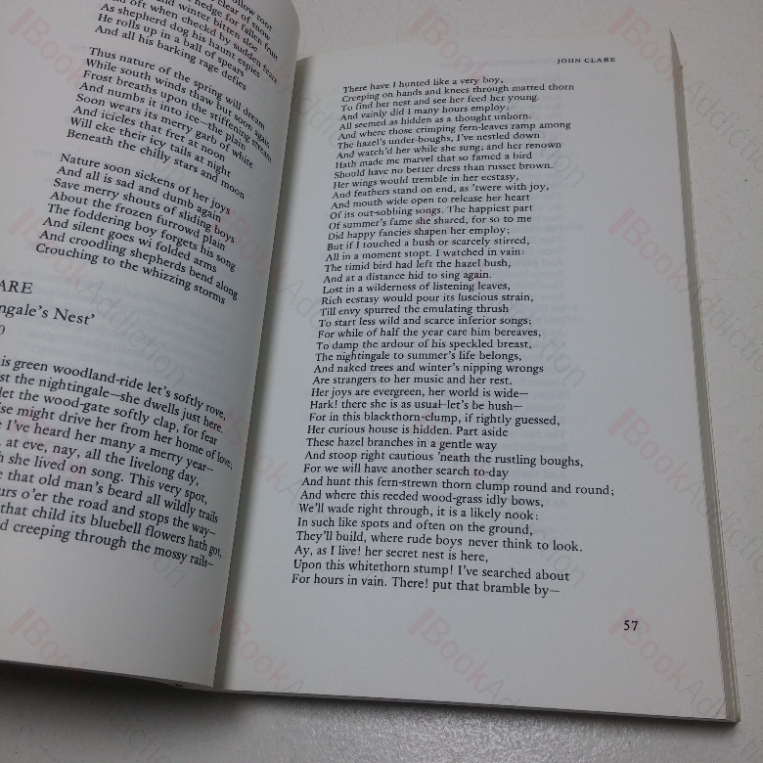 ollow root
clear of snow
hedge for fallen fruit
nd winter bitten sloe
oft when checkd by sudden fears
As shepherd dog his haunt espies
He rolls up in a ball of spears
And all his barking rage defies
Thus nature of the spring will dream
While south winds thaw but soon again
Frost breaths upon the stiffening stream
And numbs it into ice—the plain
Soon wears its merry garb of white
And icicles that fret at noon
Will eke their icy tails at night
Beneath the chilly stars and moon
Nature soon sickens of her joys
And all is sad and dumb again
Save merry shouts of sliding boys
About the frozen furrowd plain
The foddering boy forgets his song
And silent goes wi folded arms
And croodling shepherds bend along
Crouching to the whizzing storms
ARE
ngale's Nest'
0
is green woodland-ride let's softly rove,
st the nightingale—she dwells just here.
let the wood-gate softly clap, for fear
ise might drive her from her home of love;
e I've heard her many a merry year—
, at eve, nay, all the livelong day,
h she lived on song. This very spot,
e that old man's beard all wildly trails
urs o'er the road and stops the way—
that child its bluebell flowers hath got,
d creeping through the mossy rails—
JOHN CLARE
There have I hunted like a very boy,
Creeping on hands and knees through matted thorn
To find her nest and see her feed her young.
And vainly did I many hours employ:
All seemed as hidden as a thought unborn.
And where those crimping fern-leaves ramp among
The hazel's under-boughs, I've nestled down
And watch'd her while she sung; and her renown
Hath made me marvel that so famed a bird
Should have no better dress than russet brown.
Her wings would tremble in her ecstasy,
And feathers stand on end, as 'twere with joy,
And mouth wide open to release her heart
Of its out-sobbing songs. The happiest part
Of summer's fame she shared, for so to me
Did happy fancies shapen her employ;
But if I touched a bush or scarcely stirred,
All in a moment stopt. I watched in vain:
The timid bird had left the hazel bush,
And at a distance hid to sing again.
Lost in a wilderness of listening leaves,
Rich ecstasy would pour its luscious strain,
Till envy spurred the emulating thrush
To start less wild and scarce inferior songs;
For while of half the year care him bereaves,
To damp the ardour of his speckled breast,
The nightingale to summer's life belongs,
And naked trees and winter's nipping wrongs
Are strangers to her music and her rest.
Her joys are evergreen, her world is wide—
Hark! there she is as usual—let's be hush—
For in this blackthorn-clump, if rightly guessed,
Her curious house is hidden. Part aside
These hazel branches in a gentle way
And stoop right cautious 'neath the rustling boughs,
For we will have another search to-day
And hunt this fern-strewn thorn clump round and round;
And where this reeded wood-grass idly bows,
We'll wade right through, it is a likely nook:
In such like spots and often on the ground,
They'll build, where rude boys never think to look.
Ay, as I live! her secret nest is here,
Upon this whitethorn stump! I've searched about
For hours in vain. There! put that bramble by—
57
BookAddiction